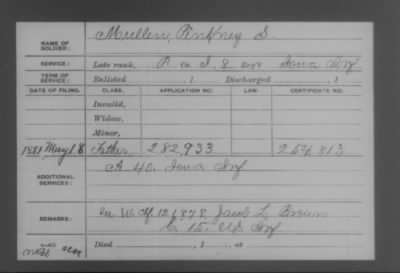 NAME OF SOLDIER: Mullen, Pinkney S.
SERVICE: Late rank, P. Co. I. 8 Reg't Iowa Inf
TERM OF SERVICE: Enlisted , 1 Discharged , 1
DATE OF FILING. CLASS. APPLICATION NO. LAW. CERTIFICATE NO.
Invalid,
Widow,
Minor,
1881 May Father 282,933 254,813
ADDITIONAL SERVICES: A 40. Iowa Inf
REMARKS: W. Ctf 126878 Jacob L. Brown
C. 15. U.S. Inf
Died , 1 , at